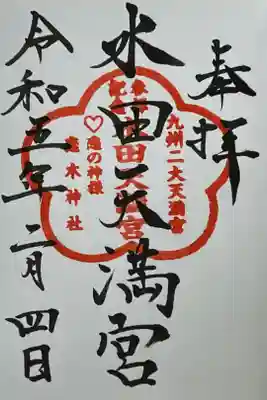 奉拝
九州二大天満宮
水田天満宮
♡恋の神様
恋木神社
令和五年二月四日